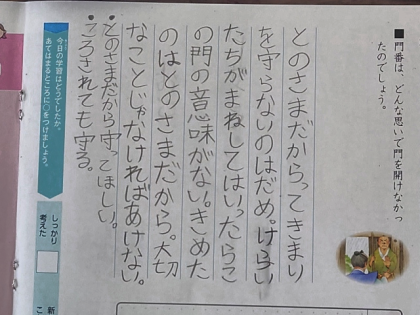 ■門番は、どんな思いで門を開けなかっ
たのでしょう。
とのさまだからってきまり
を守らないのはだめ。けらい
たちがまねしてはいったらこ
の門の意味がない。きめた
のはとのさまだから。大切
なことじゃなければあけない。
・とのさまだから守ってほしい。
・ころされても守る。
今日の学習はどうでしたか。
あてはまるところに○をつけましょう。
しっかり
考えた
新
こ